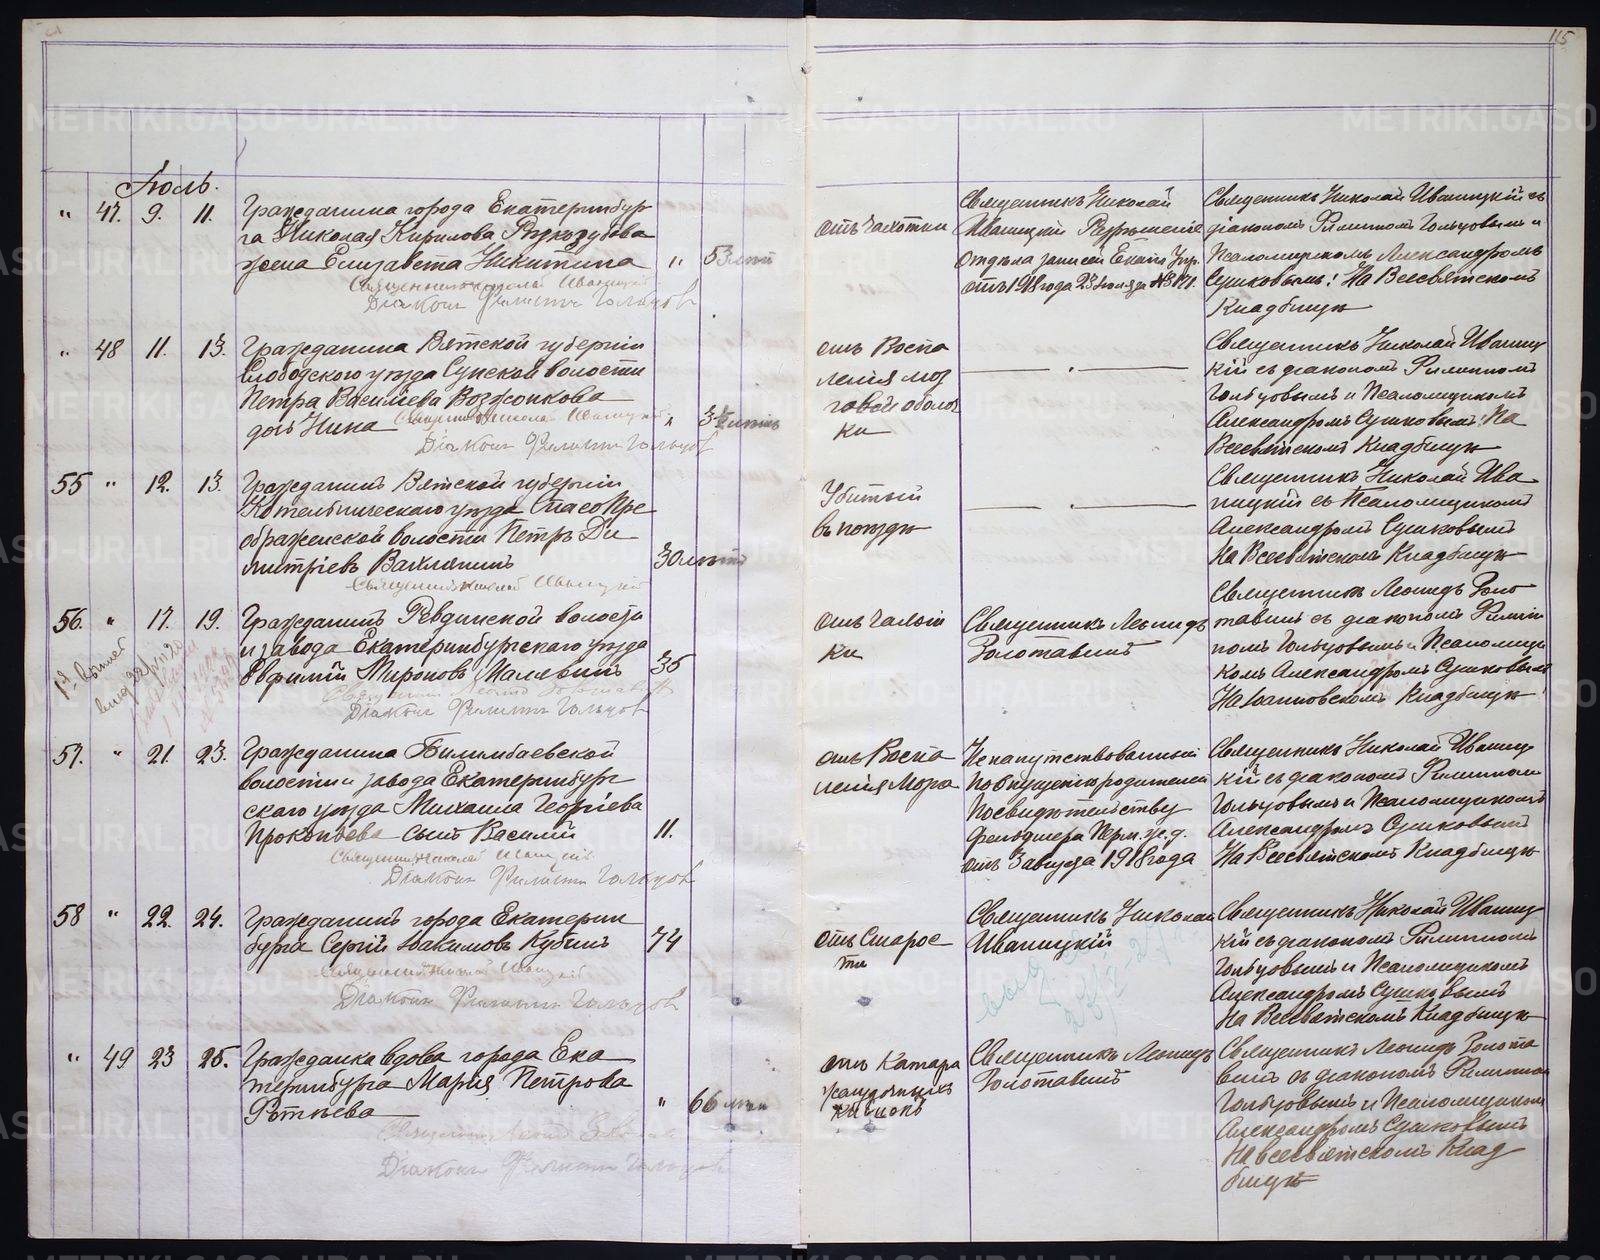 115
Іюль.
" 47. 9. 11. Гражданина города Екатеринбур
га Николая Кирилова
жена Елизавета Никитина " 53 лет
Священник Николай Иваницкий
Діаконъ Филиппъ Гольцов
отъ Чахотки
Священникъ Николай
Иваницкій Разрѣшеніе
Отдѣла записей Екат.
отъ 1918 года 23 Іюля за №
Священникъ Николай Иваницкій съ
діакономъ Филиппомъ Гольцовымъ и
Псаломщикомъ Александромъ
Сушковымъ: На Всесвятскомъ
Кладбищѣ
" 48 11. 13. Гражданина Вятской губерніи
Слободского уѣзда Сунской волости
Петра Васильева Возжонкова
дочь Нина "
Діаконъ Филиппъ Гольцов
отъ Воспа
ленія моз
говой оболоч
ки
Священникъ Николай Иваниц
кій съ діакономъ Филиппомъ
Гольцовымъ и Псаломщикомъ
Александромъ Сушковымъ: На
Всесвятскомъ Кладбищѣ
55 " 12. 13. Гражданинъ Вятской губерніи
Котельническаго уѣзда Спасо Пре
ображенской волости Петръ Ди
митріевъ Вахлянинъ 30 лѣтъ
Священникъ Николай Иваницкій
Убитый
въ поѣздѣ
Священникъ Николай Ива
ницкій съ Псаломщикомъ
Александромъ Сушковымъ
На Всесвятскомъ Кладбищѣ
56. " 17. 19. Гражданинъ Ревдинской волости
и завода Екатеринбургскаго уѣзда
Евфимій Мироновъ Малявинъ 35
Священник Леонид Золотавин
Діаконъ Филиппъ Гольцов
отъ Чахот
ки
Священникъ Леонидъ
Золотавинъ
Священникъ Леонидъ Золо
тавинъ съ діакономъ Филип
помъ Гольцовымъ и Псаломщи
комъ Александромъ Сушковымъ
На Іоанновскомъ Кладбищѣ
57. " 21. 23. Гражданина Билимбаевской
волости и завода Екатеринбург
скаго уѣзда Михаила Георгіева
Прокопьева сынъ Василій 11.
Священник Николай Иваницкій
Діаконъ Филиппъ Гольцов
отъ Воспа
ленія Мозга
Не напутствованный
По опущенію родителей
По свидѣтельству
фельдшера Перм. ж. д.
отъ 3 августа 1918 года
Священникъ Николай Иваниц
кій съ діакономъ Филиппом
Гольцовымъ и Псаломщикомъ
Александромъ Сушковымъ
На Всесвятскомъ Кладбищѣ
58 " 22. 24. Гражданинъ города Екатерин
бурга Сергій Іоакимовъ Кубинъ 74
Священник Николай Иваницкій
Діаконъ Филиппъ Гольцов
отъ Старос
ти
Священникъ Николай
Иваницкій
Священникъ Николай Иваниц
кій съ діакономъ Филиппомъ
Гольцовымъ и Псаломщикомъ
Александромъ Сушковымъ
На Всесвятскомъ Кладбищѣ
" 49 23 25. Гражданка вдова города Ека
теринбурга Марія Петрова
" 66 лет
Діаконъ Филиппъ Гольцов
отъ Катара
желудочныхъ
кишокъ
Священникъ Леонидъ
Золотавинъ
Священникъ Леонидъ Золота
винъ съ діакономъ Филиппом
Гольцовымъ и Псаломщиком
Александромъ Сушковымъ
На всесвятскомъ Клад
бищѣ
METRIKI.GASO-URAL.RU